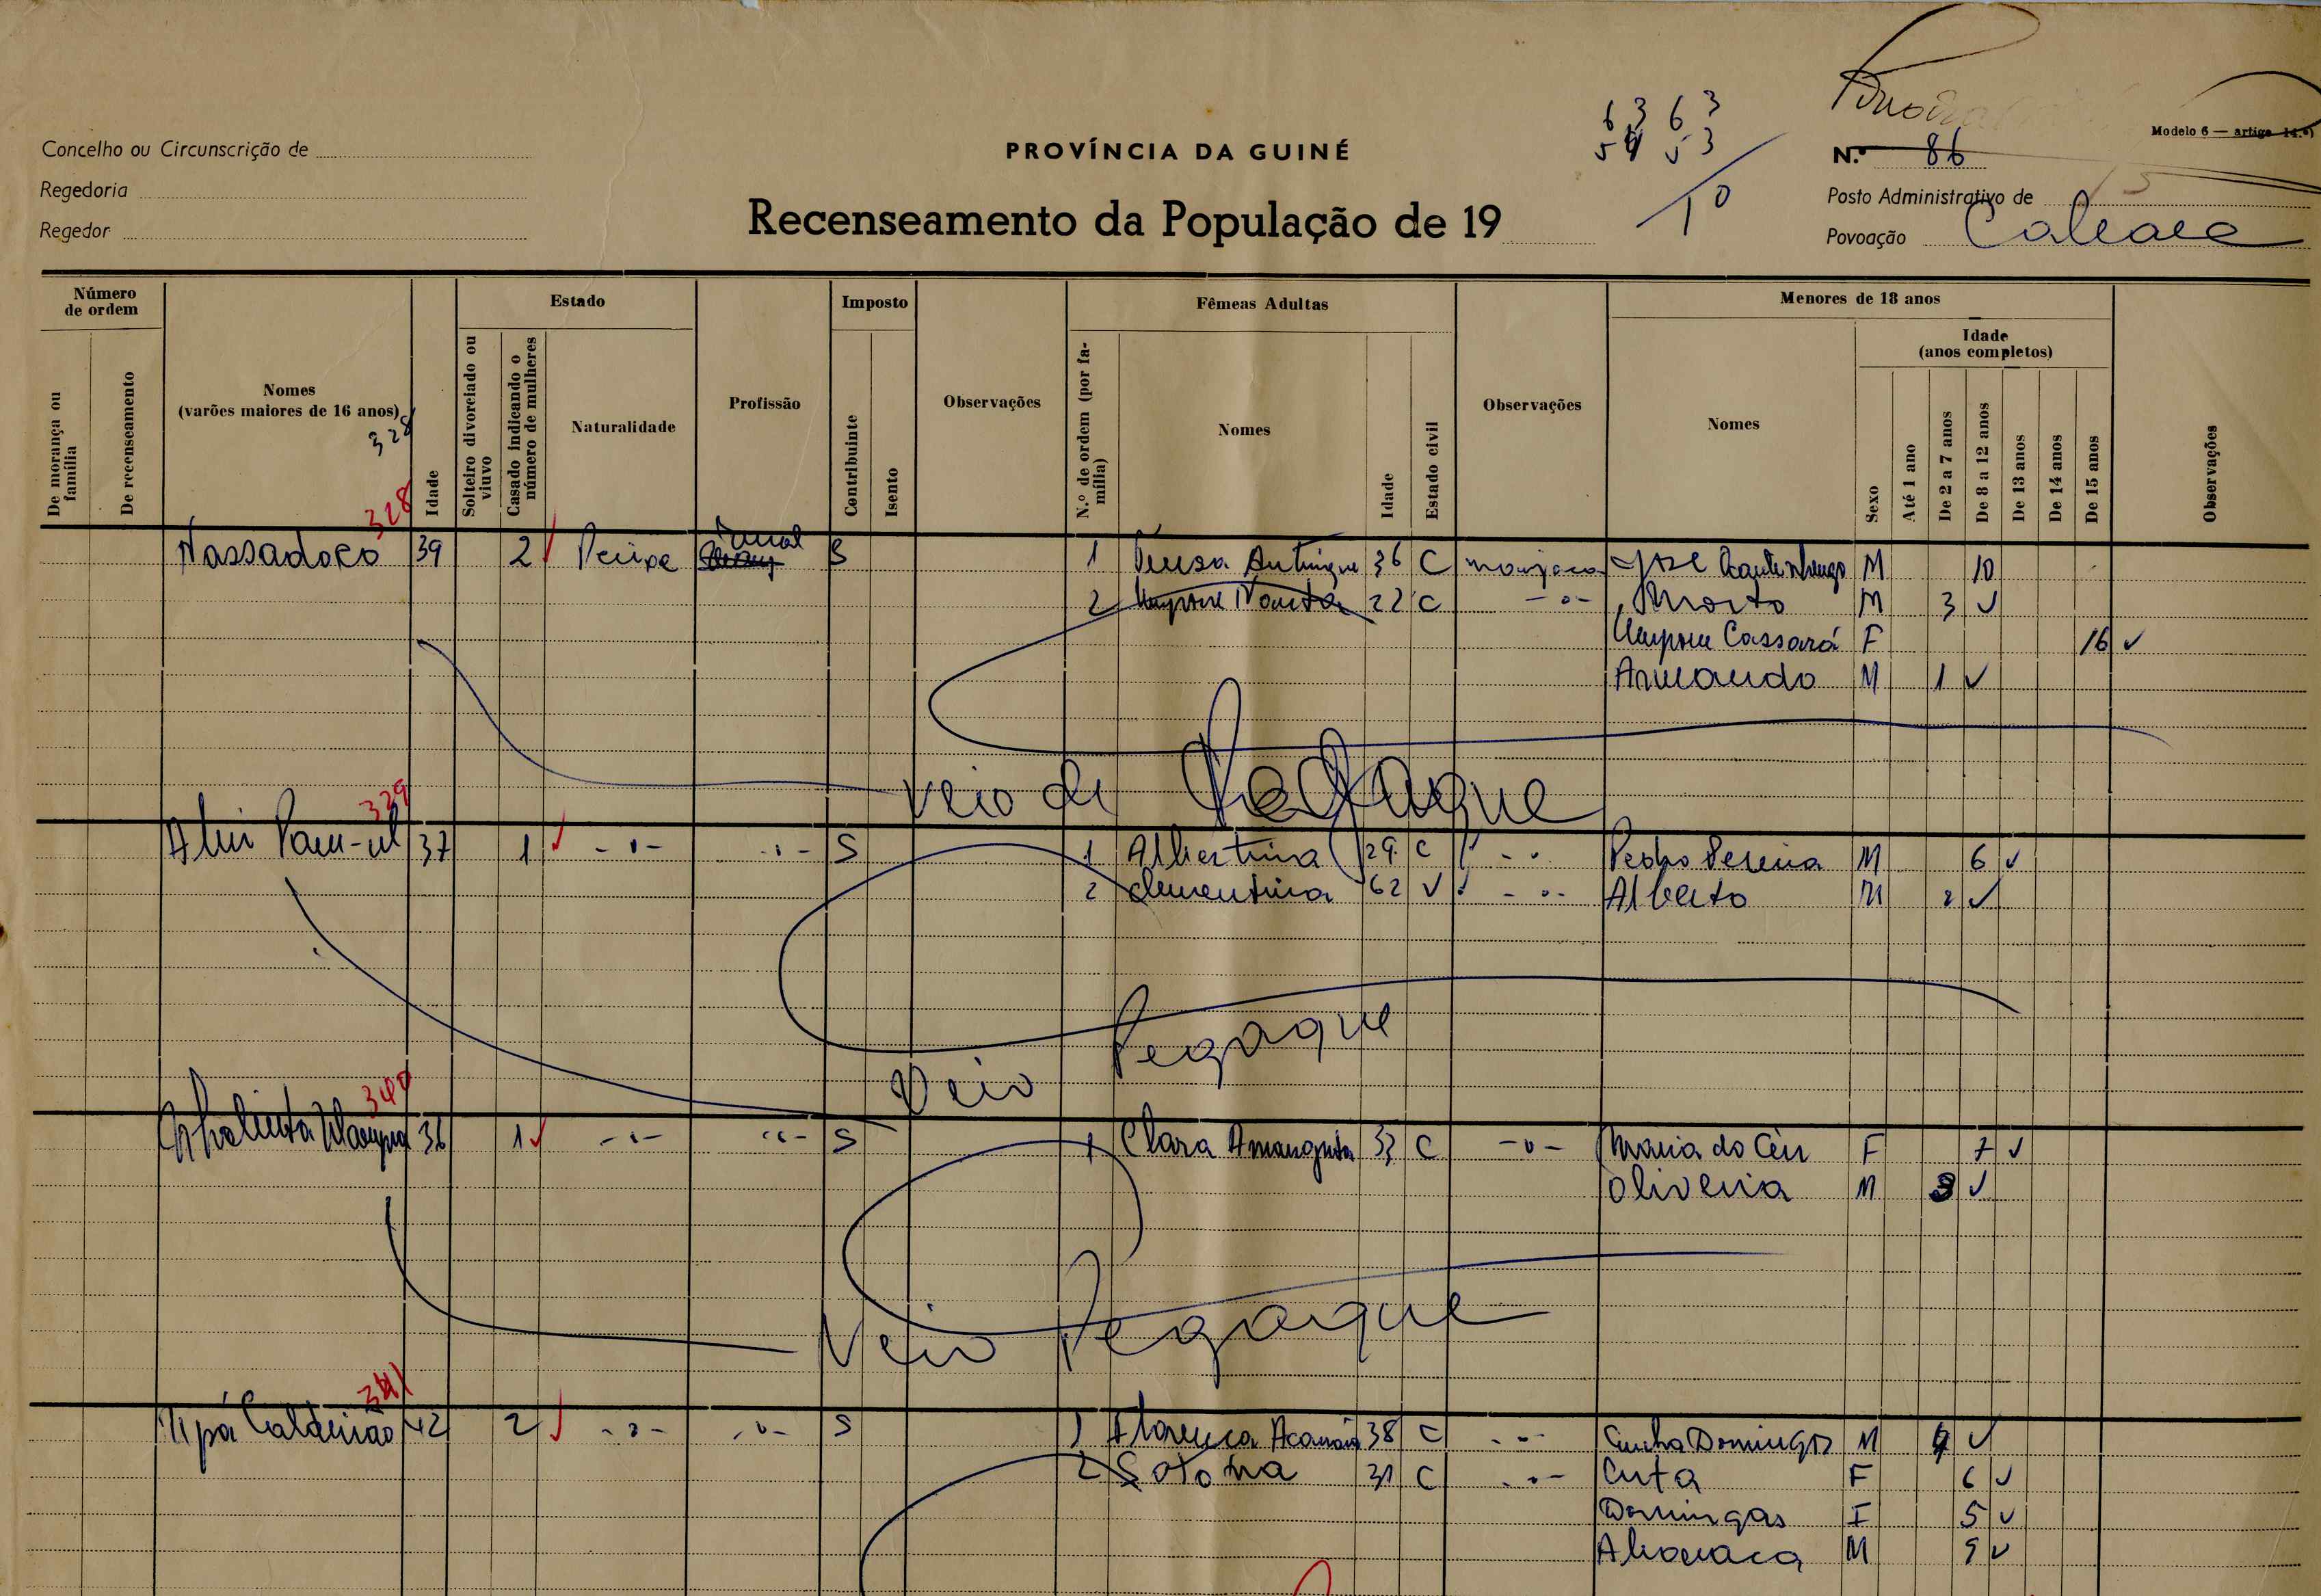 Concelho ou Circunscrição de
Regedoria
Regedor
PROVÍNCIA DA GUINÉ
Recenseamento da População de 19
6 3 6 3
5 3
10
Modelo 6 — artigo 14.º)
N.º 86
Posto Administrativo de
Povoação
Número de ordem
De morança ou família
De recenseamento
Nomes
(varões maiores de 16 anos)
328
328
Idade
Estado
Solteiro divorciado ou viuvo
Casado indicando o número de mulheres
Naturalidade
Profissão
Imposto
Contribuinte
Isento
Observações
Fêmeas Adultas
N.º de ordem (por família)
Nomes
Idade
Estado civil
Observações
Menores de 18 anos
Nomes
Sexo
Idade
(anos completos)
Até 1 ano
De 2 a 7 anos
De 8 a 12 anos
De 13 anos
De 14 anos
De 15 anos
Observações
Nassadoco 39 2 rural S 1 36 C José M 10
2 22 C -"- M 3 ✓
Cassará F 16 ✓
Armando M 1 ✓
Veio de
329
37 1 -"- -"- S 1 Albertina 29 C -"- Pedro Pereira M 6 ✓
2 Clementina 62 V -"- Alberto M 2 ✓
Veio Pegaque
340
36 1 -"- -"- S 1 Clara 33 C -"- Maria do Céu F 7 ✓
Oliveira M 3 ✓
Veio Pegaque
341
42 2 -"- -"- S 1 38 C -"- Cunha Domingos M 4 ✓
2 31 C -"- Cuta F 6 ✓
Domingas F 5 ✓
M 9 ✓